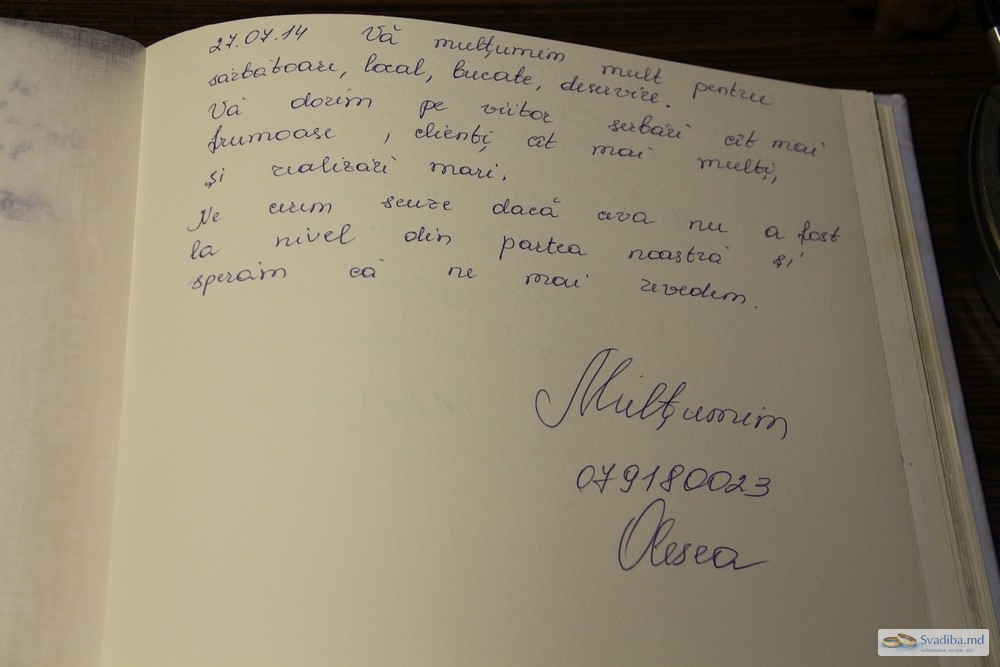 27.07.14 Vă mulţumim mult pentru
sărbătoare, local, bucate, deservire.
Vă dorim pe viitor serbări cît mai
frumoase, clienţi cît mai mulţi,
şi realizări mari.
Ne cerem scuze dacă ceva nu a fost
la nivel din partea noastră şi
sperăm că ne mai revedem.
Mulţumim
079180023
Olesea
Svadiba.md